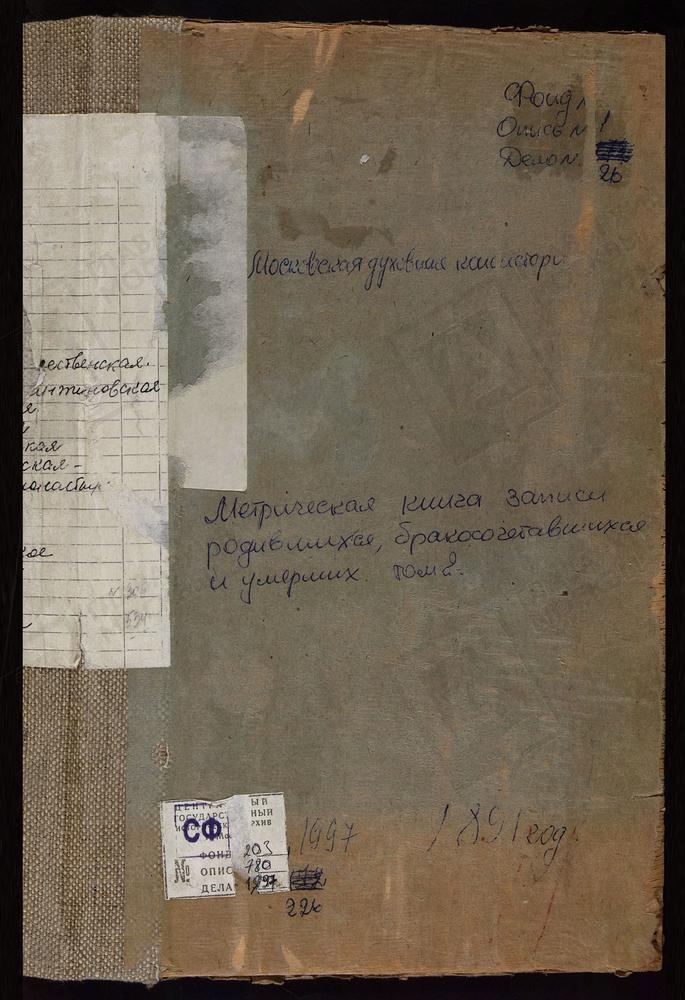 Фонд
Опись № 1
Дело №
26
Московская духовная консистори
ественская.
антиновская
я
кая
ская -
монастыр.
кое
Метрическая книга записи
родившихся, бракосочетавшихся
и умерших. том 2.
N 306
534
ЦЕНТРА ЫЙ
ГОСУДАРС НЫЙ
РХИВ
СФ
ФОНД 203
№ ОПИС 780
ДЕЛА 1997
226
1997
1891 год